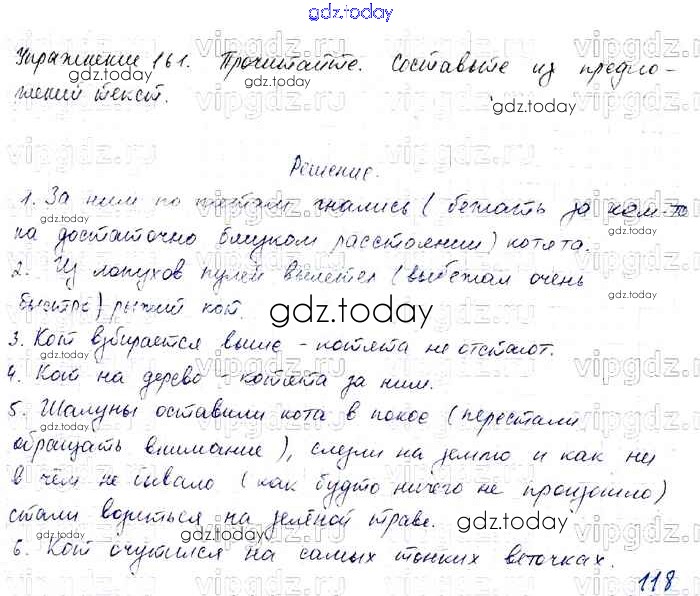 gdz.today
Упражнение 161. Прочитайте. Составьте из предло-
жений текст.
gdz.today
Решение.
1. За ним по пятам гнались (бежать за кем-то
на достаточно близком расстоянии) котята.
2. Из лопухов пулей вылетел (выбежал очень
быстро) рыжий кот.
gdz.today
3. Кот взбирается выше - котята не отстают.
4. Кот на дерево - котята за ним.
5. Шалуны оставили кота в покое (перестали
обращать внимание), слезли на землю и как ни
в чём не бывало (как будто ничего не произошло)
стали возиться на зелёной траве.
gdz.today
6. Кот очутился на самых тонких веточках.
118